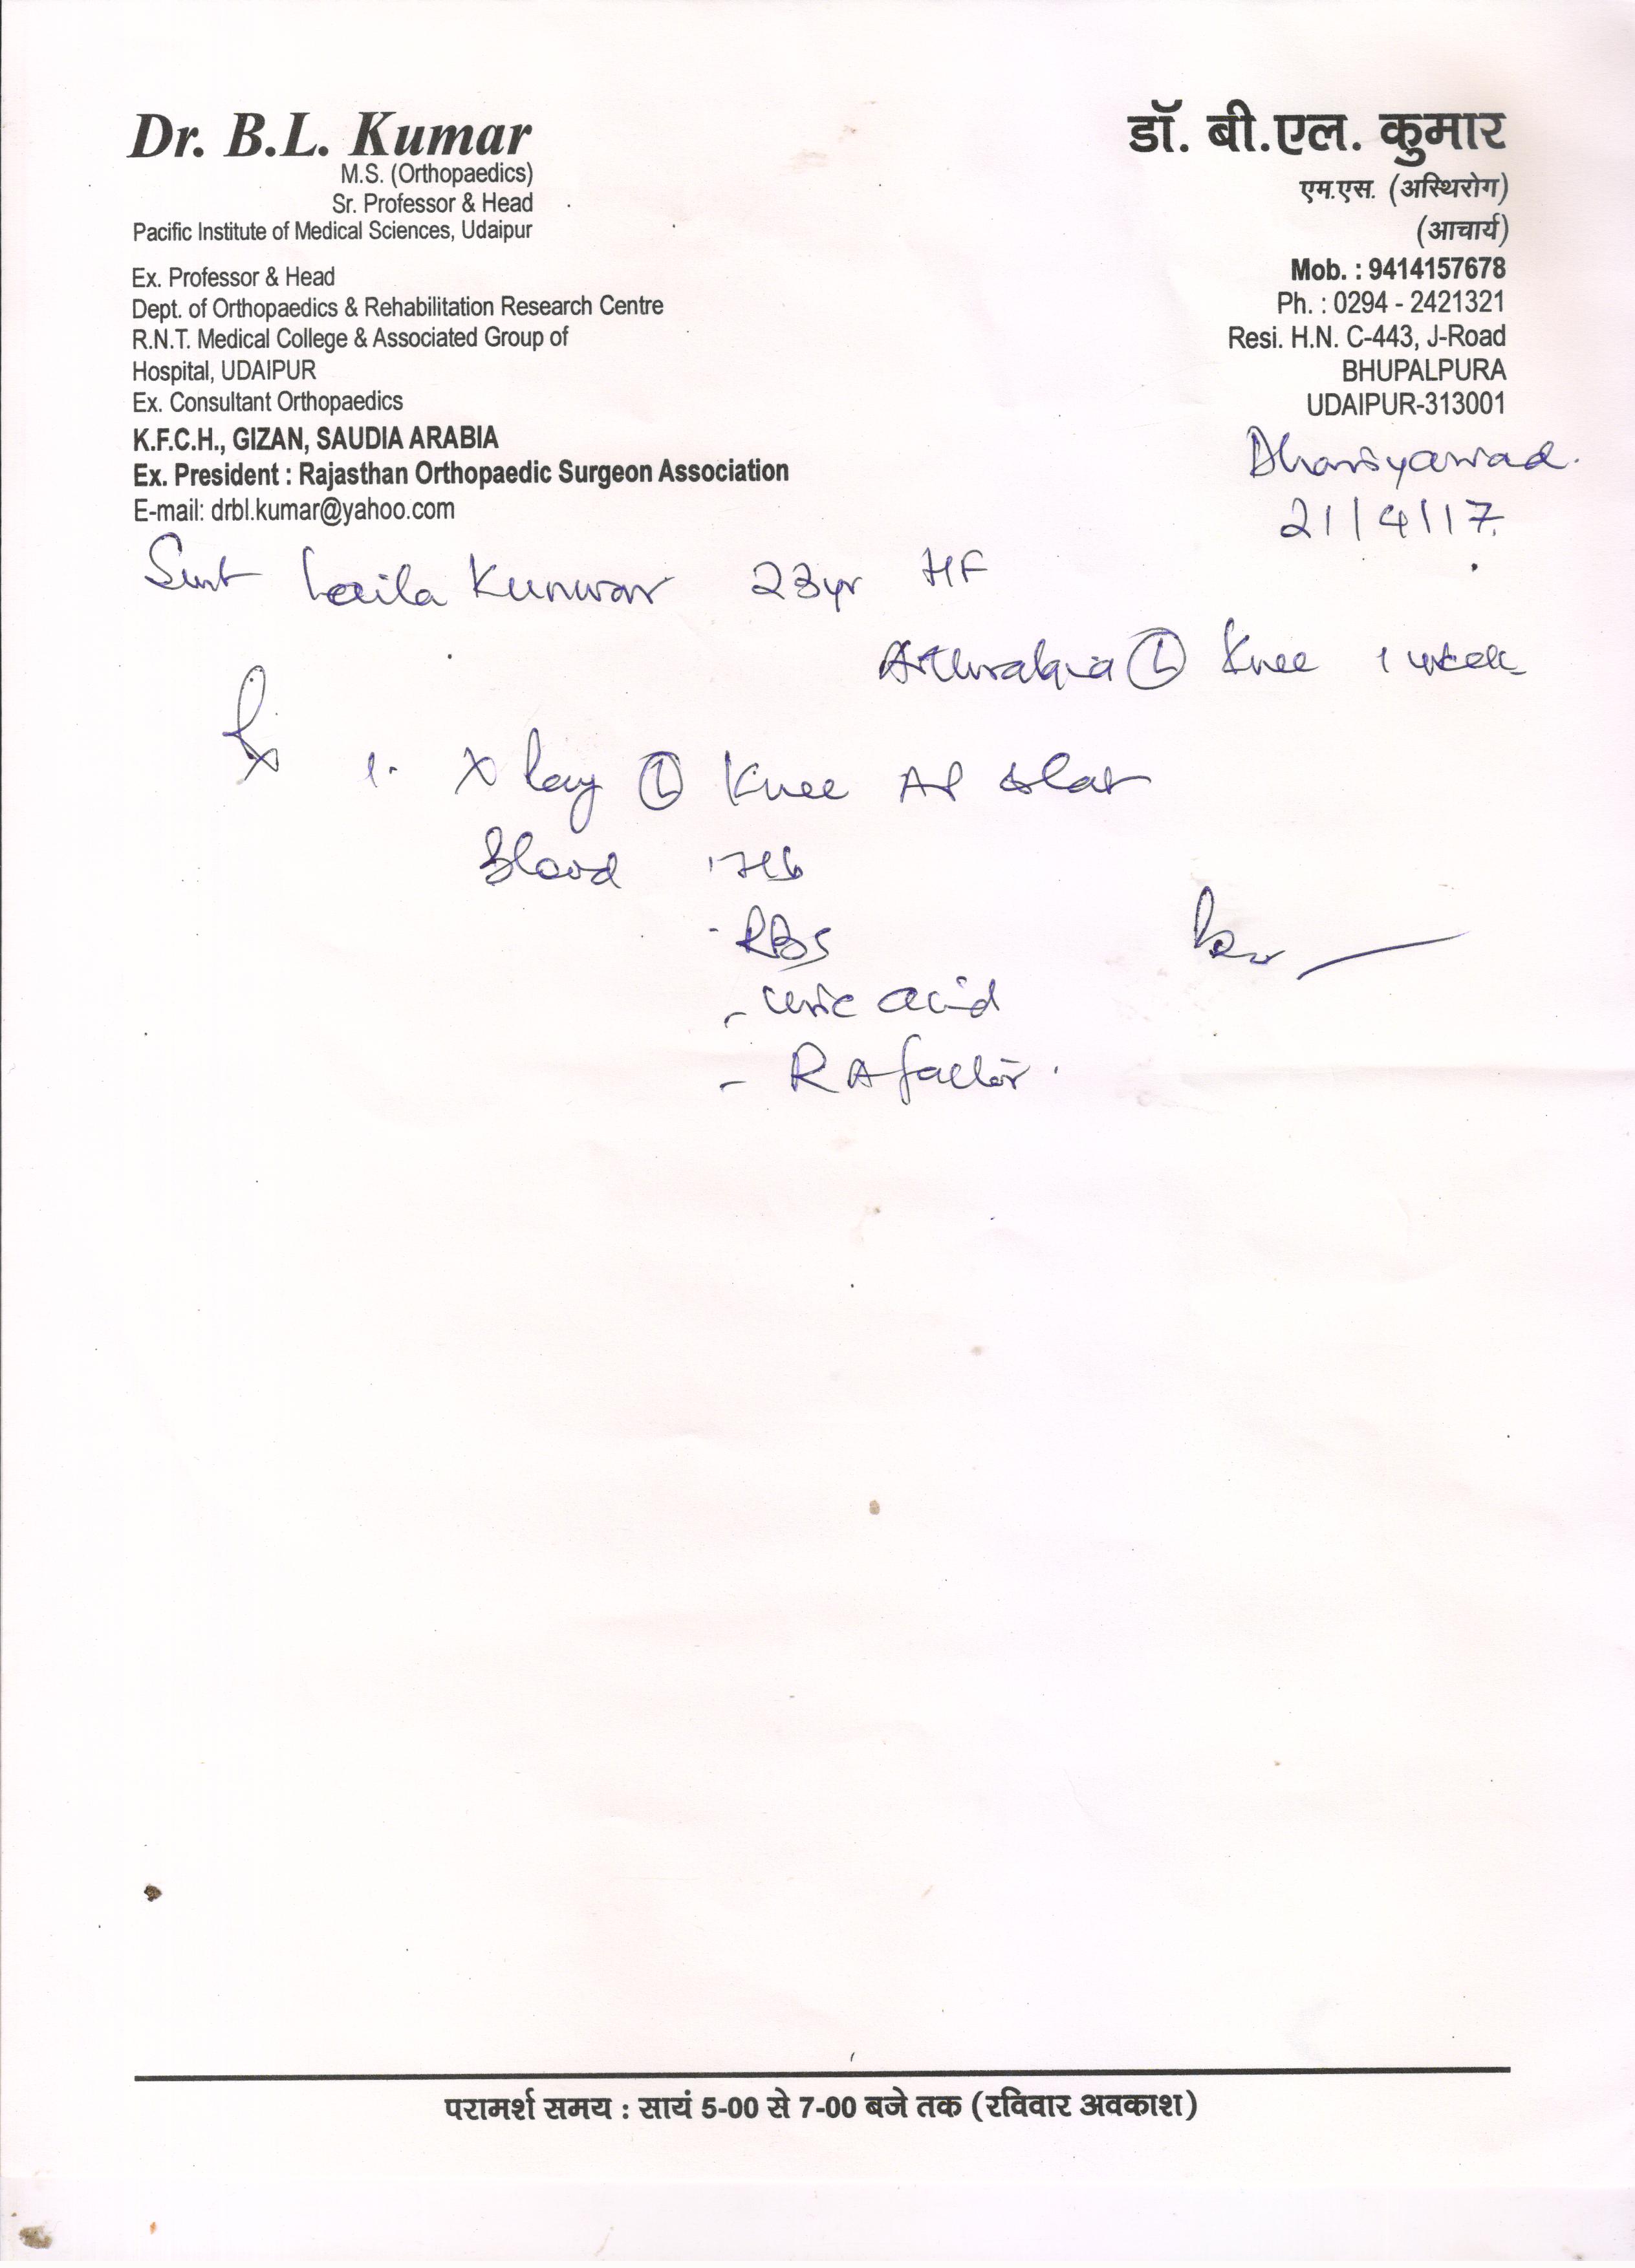 Dr. B.L. Kumar
M.S. (Orthopaedics)
Sr. Professor & Head
Pacific Institute of Medical Sciences, Udaipur
Ex. Professor & Head
Dept. of Orthopaedics & Rehabilitation Research Centre
R.N.T. Medical College & Associated Group of
Hospital, UDAIPUR
Ex. Consultant Orthopaedics
K.F.C.H., GIZAN, SAUDIA ARABIA
Ex. President : Rajasthan Orthopaedic Surgeon Association
E-mail: drbl.kumar@yahoo.com
डॉ. बी.एल. कुमार
एम.एस. (अस्थिरोग)
(आचार्य)
Mob. : 9414157678
Ph. : 0294 - 2421321
Resi. H.N. C-443, J-Road
BHUPALPURA
UDAIPUR-313001
Dhariyawad.
21/4/17
Smt Laila Kunwar 23yr HF
Arthralgia Ⓛ Knee 1 week
Rx 1. X Ray Ⓛ Knee AP & lat
Blood - Hb
- RBS
- uric acid
- RA factor.
परामर्श समय : सायं 5-00 से 7-00 बजे तक (रविवार अवकाश)